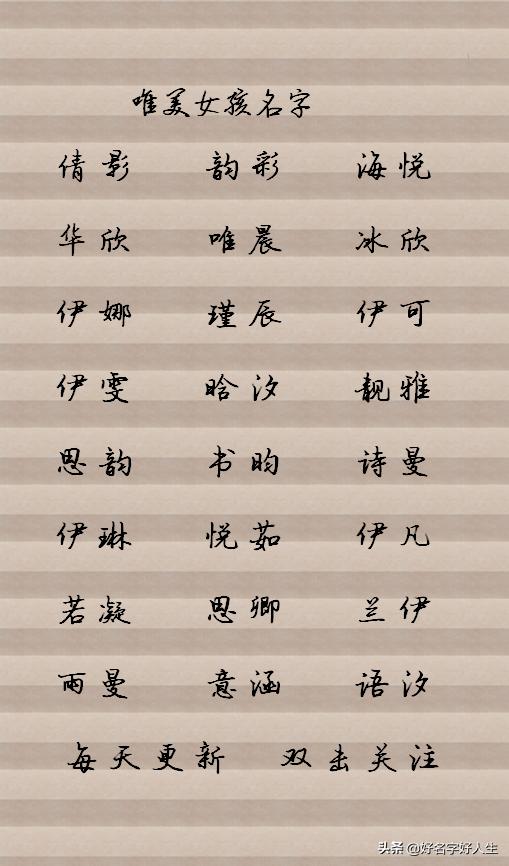 唯美女孩名字
倩影 韵彩 海悦
华欣 唯晨 冰欣
伊娜 瑾辰 伊可
伊雯 晗汐 靓雅
思韵 书昀 诗曼
伊琳 悦茹 伊凡
若凝 思卿 兰伊
雨曼 意涵 语汐
每天更新 双击关注
头条 @好名字好人生